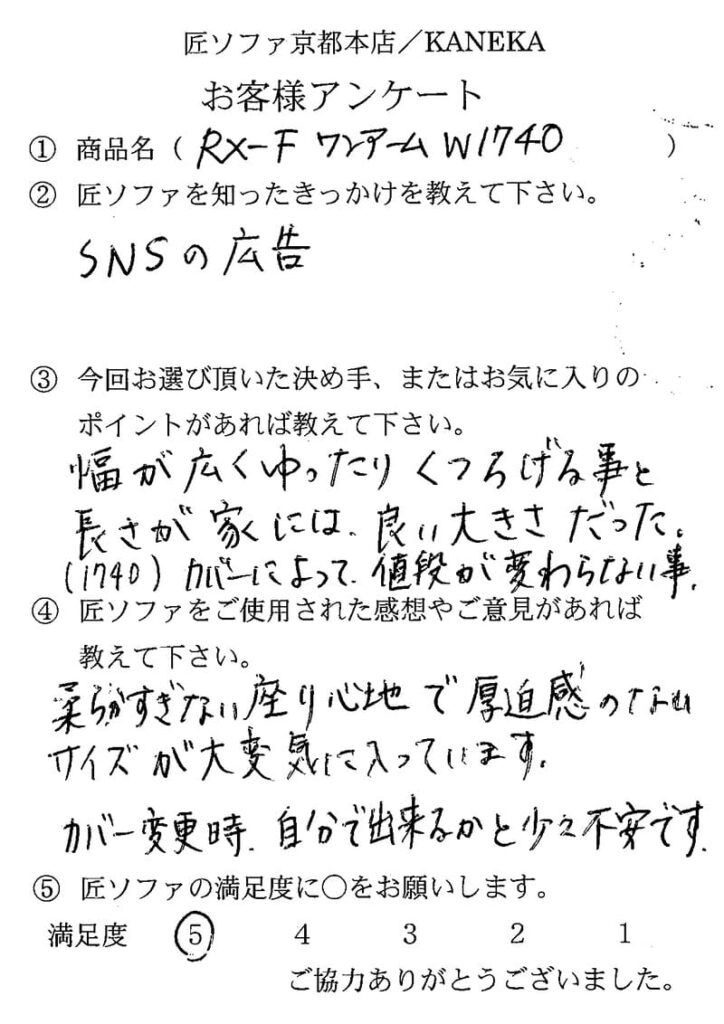 匠ソファ京都本店／KANEKA
お客様アンケート
① 商品名（ RX-F ワンアーム W1740 ）
② 匠ソファを知ったきっかけを教えて下さい。
SNSの広告
③ 今回お選び頂いた決め手、またはお気に入りの
ポイントがあれば教えて下さい。
幅が広くゆったりくつろげる事と
長さが家には、良い大きさだった。
(1740) カバーによって、値段が変わらない事、
④ 匠ソファをご使用された感想やご意見があれば
教えて下さい。
柔らかすぎない座り心地で厚迫感のない
サイズが大変気に入っています。
カバー変更時、自分で出来るかと少々不安です。
⑤ 匠ソファの満足度に○をお願いします。
満足度 5 4 3 2 1
ご協力ありがとうございました。